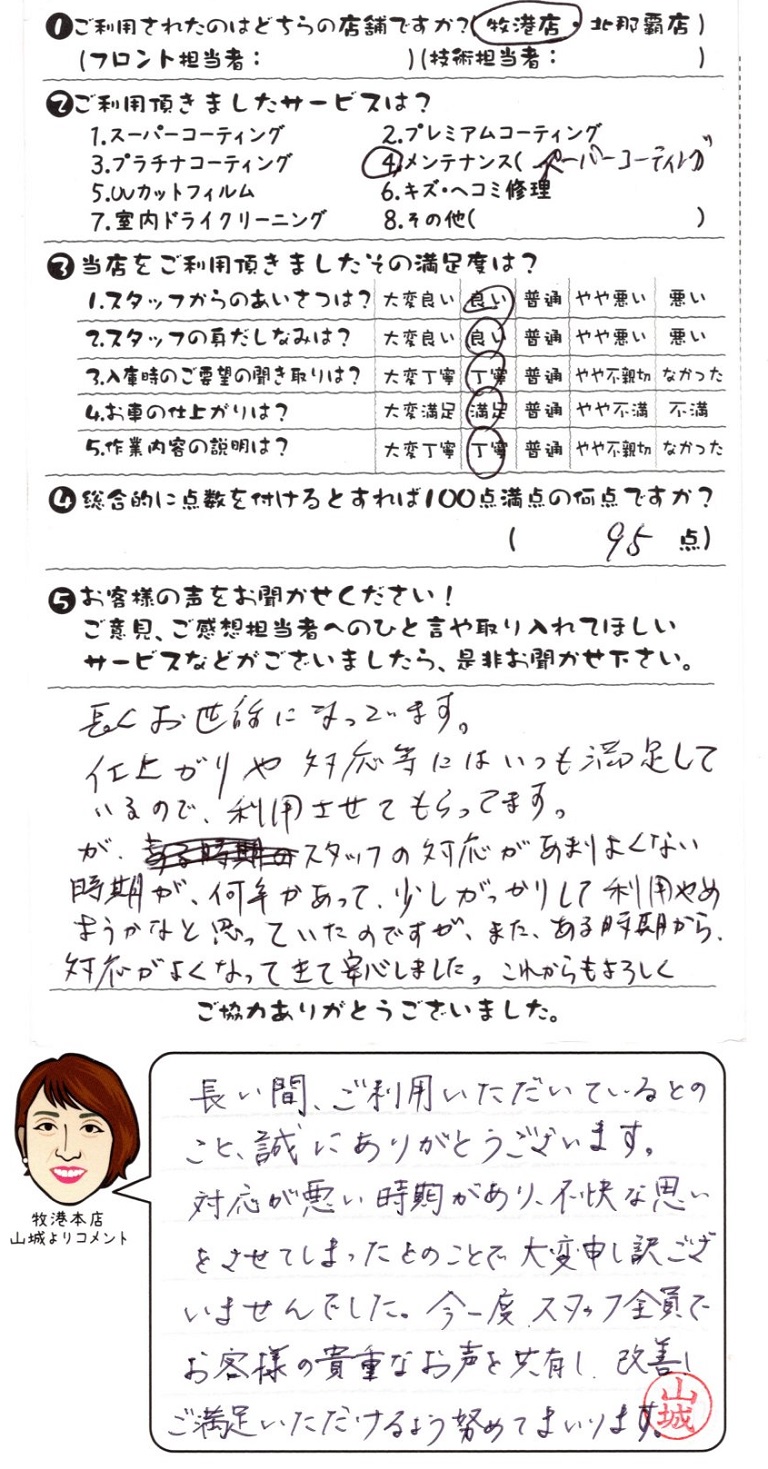 ❶ご利用されたのはどちらの店舗ですか?(牧港店・北那覇店)
(フロント担当者: )(技術担当者: )
❷ご利用頂きましたサービスは?
1.スーパーコーティング 2.プレミアムコーティング
3.プラチナコーティング 4.メンテナンス(ペーパーコーティング
5.UVカットフィルム 6.キズ・ヘコミ修理
7.室内ドライクリーニング 8.その他( )
❸当店をご利用頂きましたその満足度は?
1.スタッフからのあいさつは? 大変良い 良い 普通 やや悪い 悪い
2.スタッフの身だしなみは? 大変良い 良い 普通 やや悪い 悪い
3.入庫時のご要望の聞き取りは? 大変丁寧 丁寧 普通 やや不親切 なかった
4.お車の仕上がりは? 大変満足 満足 普通 やや不満 不満
5.作業内容の説明は? 大変丁寧 丁寧 普通 やや不親切 なかった
❹総合的に点数を付けるとすれば100点満点の何点ですか?
( 95 点)
❺お客様の声をお聞かせください!
ご意見、ご感想担当者へのひと言や取り入れてほしい
サービスなどがございましたら、是非お聞かせ下さい。
長くお世話になっています。
仕上がりや対応等にはいつも満足して
いるので、利用させてもらってます。
が、スタッフの対応があまりよくない
時期が、何年かあって、少しがっかりして利用やめ
ようかなと思っていたのですが、また、ある時期から、
対応がよくなってきて安心しました。これからもよろしく
ご協力ありがとうございました。
長い間、ご利用いただいているとの
こと、誠にありがとうございます。
対応が悪い時期があり、不快な思い
をさせてしまったとのことで大変申し訳ござ
いませんでした。今一度、スタッフ全員で
お客様の貴重なお声を共有し、改善し
ご満足いただけるよう努めてまいります。
山城
牧港本店
山城よりコメント